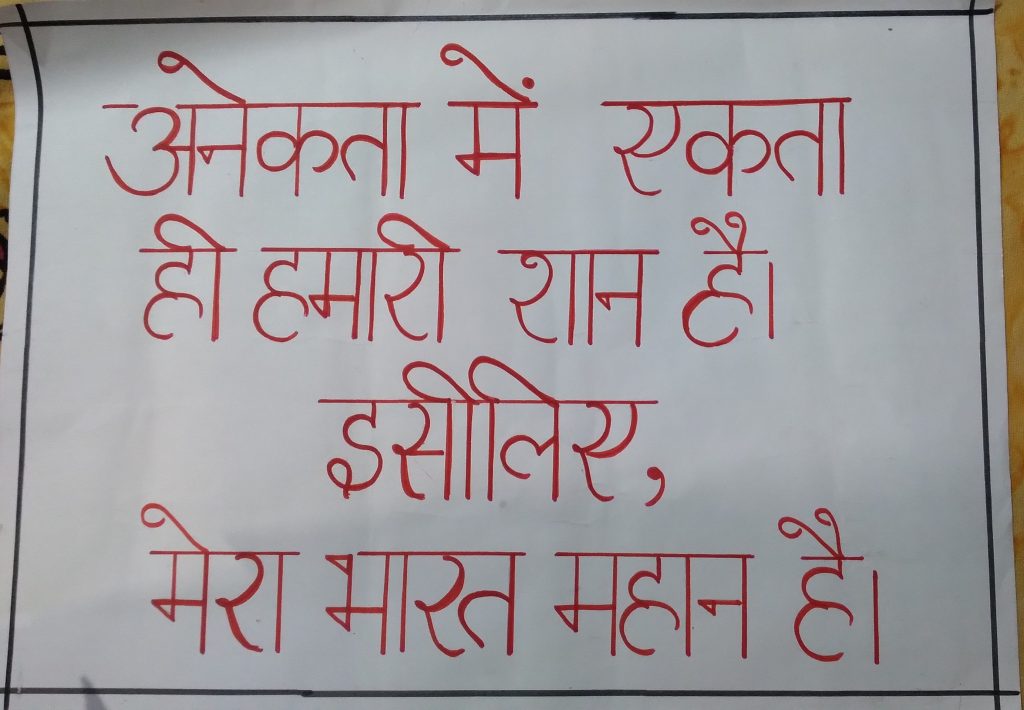 अनेकता में एकता
ही हमारी शान है।
इसीलिए,
मेरा भारत महान है।